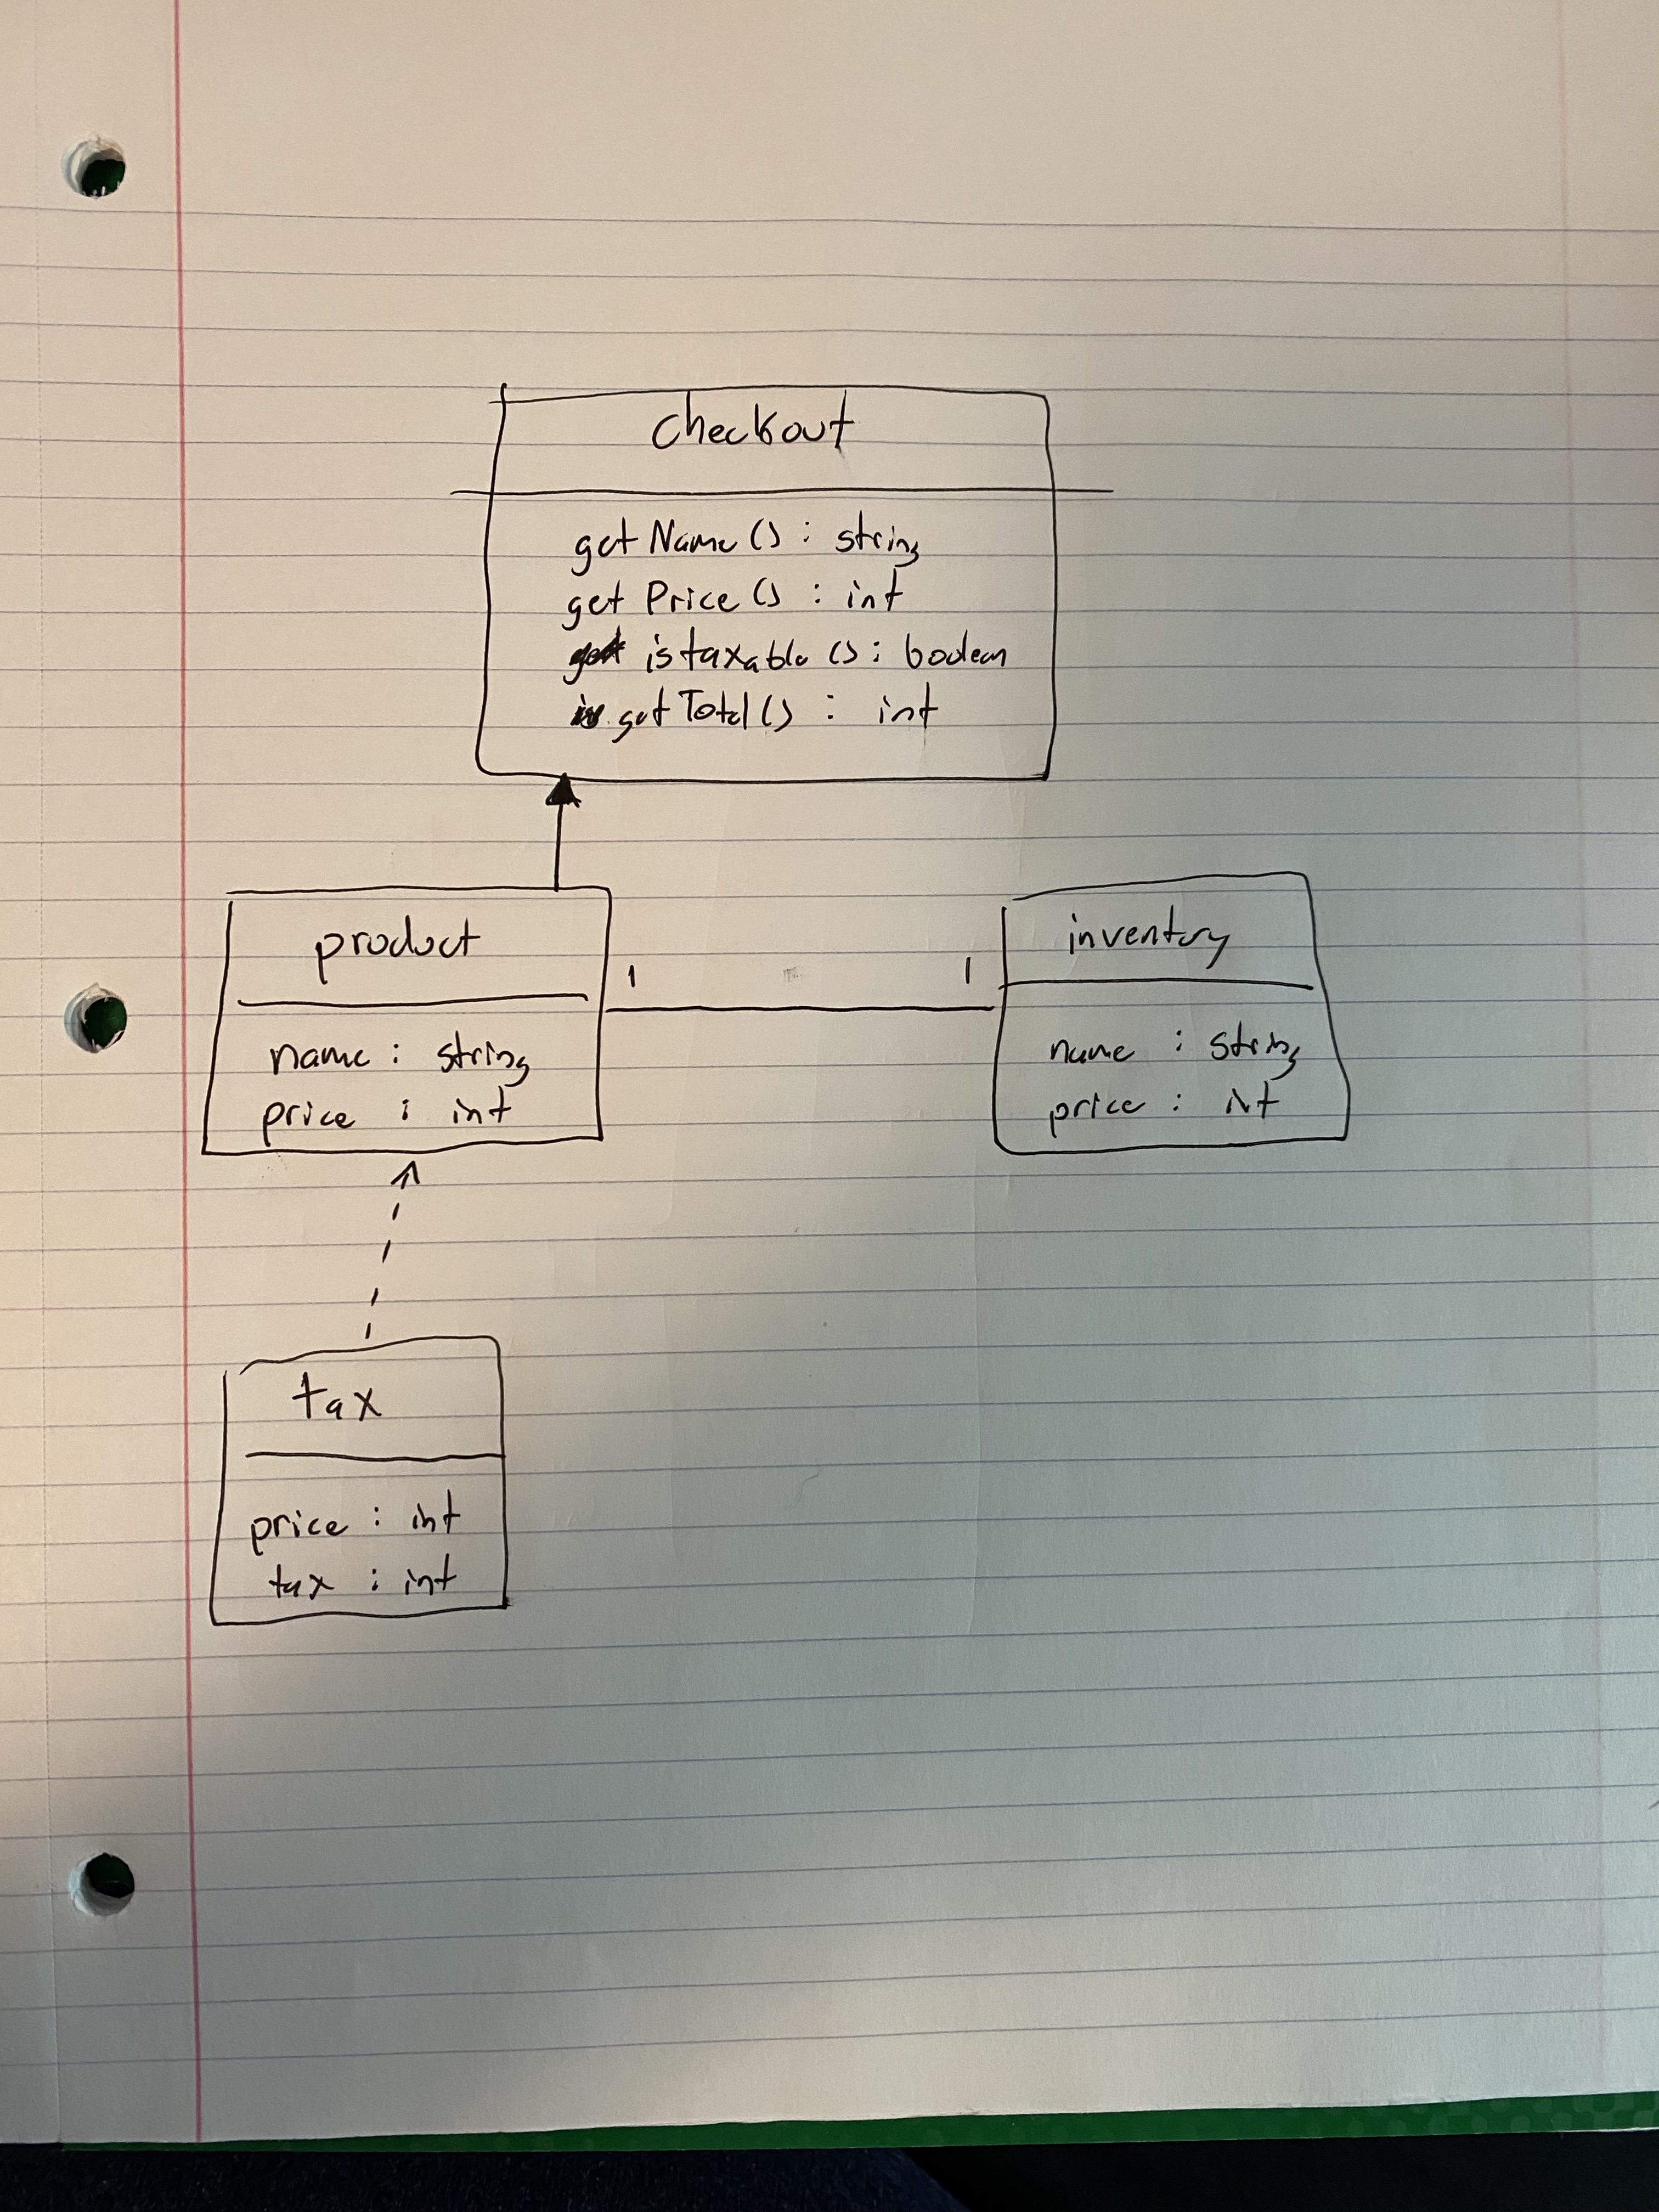 checkout
getName() : string
getPrice() : int
istaxable() : boolean
getTotal() : int
product
name : string
price : int
1 1
inventory
name : string
price : int
tax
price : int
tax : int